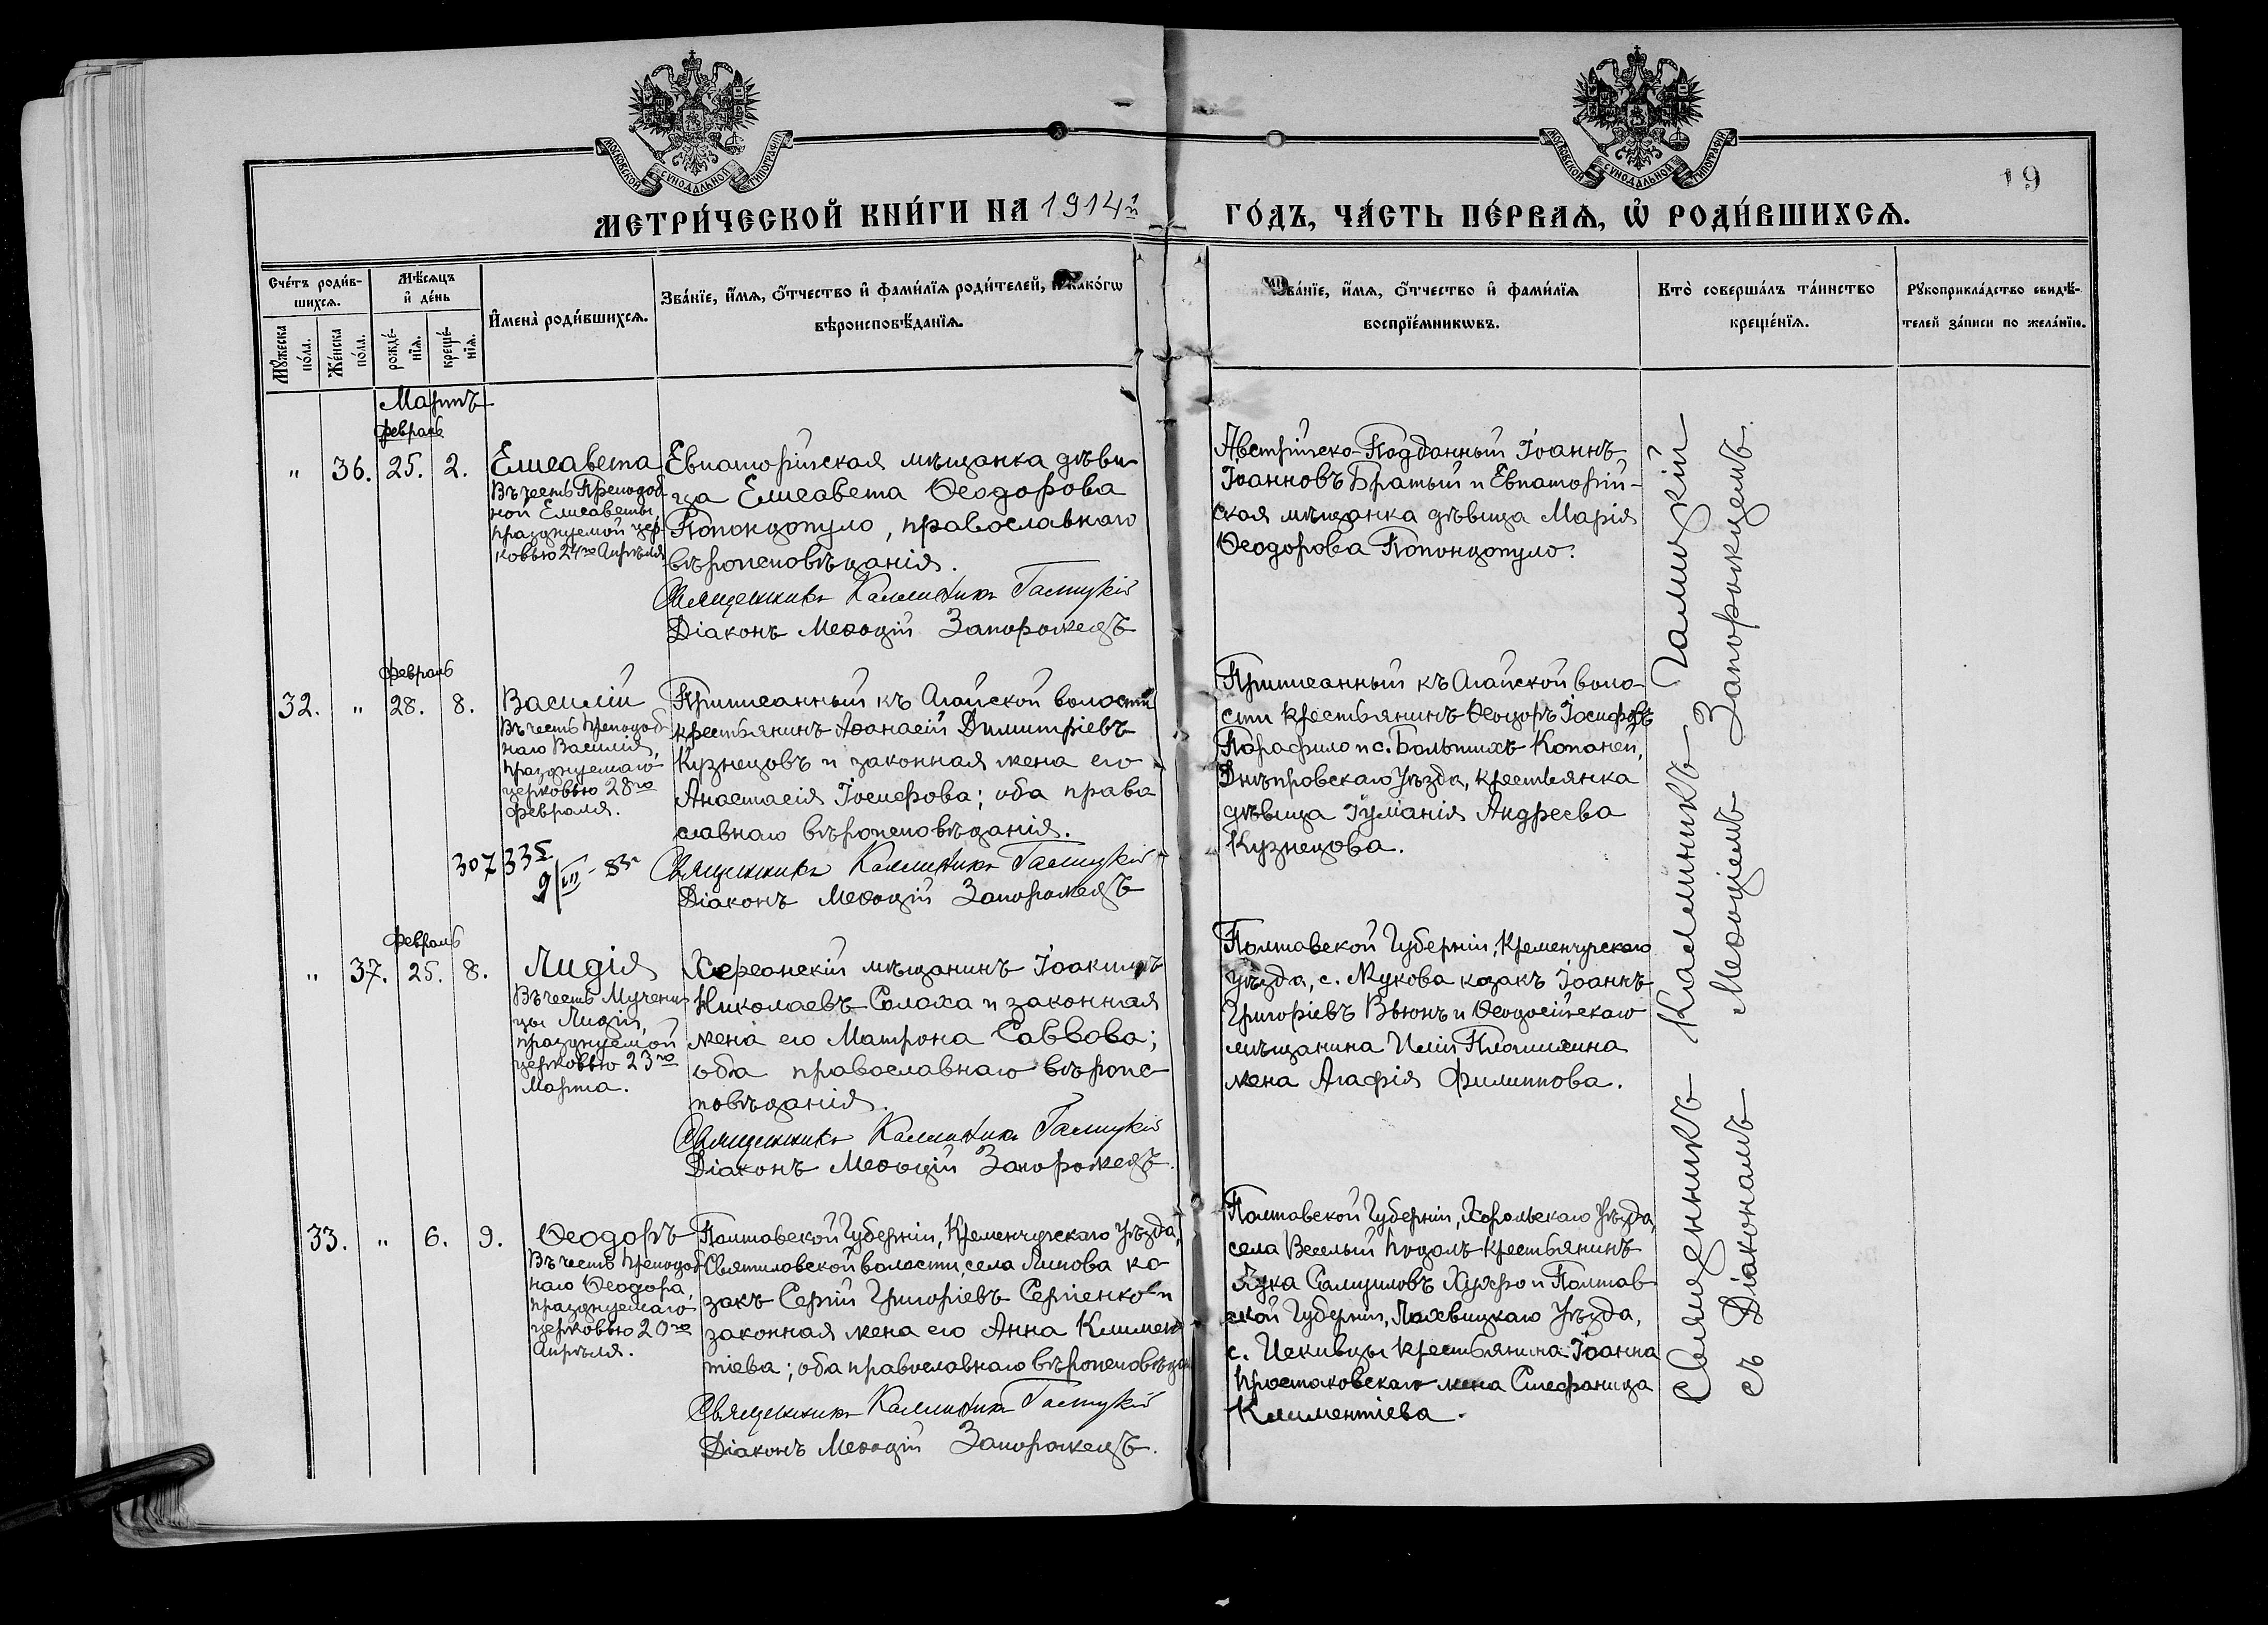 МОСКОВСКОЙ СѴНОДАЛЬНОЙ ТИПОГРАФІИ
МОСКОВСКОЙ СѴНОДАЛЬНОЙ ТИПОГРАФІИ
19
МЕТРИ́ЧЕСКОЙ КНИ́ГИ НА 1914й
ГО́ДЪ, ЧА́СТЬ ПЕ́РВАѦ, Ѡ҆ РОДИ́ВШИХСѦ.
Сче́тъ роди́в-
шихсѧ.
Мꙋ́жеска
по́ла.
Же́нска
по́ла.
Мѣ́сѧцъ
и҆ де́нь
рожде́-
нїѧ.
креще́-
нїѧ.
И҆мена̀ роди́вшихсѧ.
Зва́нїе, и҆́мѧ, ѻ҆́тчество и҆ фами́лїѧ роди́телей, и҆ како́гѡ
вѣроисповѣ́данїѧ.
Зва́нїе, и҆́мѧ, ѻ҆́тчество и҆ фами́лїѧ
воспрїе́мникѡвъ.
Кто̀ соверша́лъ та́инство
креще́нїѧ.
Рꙋкоприкла́дство свидѣ́-
телей за́писи по жела́нїю.
Мартъ
Февраль
" 36. 25. 2.
Елисавета
Въ честь Преподоб
ной Елисаветы,
празднуемой цер
ковью 24го Апрѣля
Евпаторійская мѣщанка дѣви
ца Елисавета Ѳеодорова
Попондопуло, православнаго
вѣроисповѣданія.
Священникъ Каллиникъ Галицкій
Діаконъ Меѳодій Запорожецъ
Австрійско-Подданный Іоаннъ
Іоанновъ Братый и Евпаторій-
ская мѣщанка дѣвица Марія
Ѳеодорова Попондопуло.
Февраль
32. " 28. 8.
Василій
Въ честь Преподоб
наго Василія,
празднуемаго
церковью 28го
Февраля.
Приписанный къ Агайской волости
крестьянинъ Аѳанасій Димитріевъ
Кузнецовъ и законная жена его
Анастасія Іосифова; оба право
славнаго вѣроисповѣданія.
307 335
9/III - 83г
Священникъ Каллиникъ Галицкій
Діаконъ Меѳодій Запорожецъ
Приписанный къ Агайской воло-
сти крестьянинъ Ѳеодоръ Іосифовъ
Парафило и с. Большихъ Копаней,
Днѣпровскаго Уѣзда, крестьянка
дѣвица Іуліанія Андреева
Кузнецова.
Февраль
" 37. 25. 8.
Лидія
Въ честь Мучени
цы Лидіи,
празднуемой
церковью 23го
Марта.
Херсонскій мѣщанинъ Іоакимъ
Николаевъ Солоха и законная
жена его Матрона Саввова;
оба православнаго вѣроис
повѣданія.
Священникъ Каллиникъ Галицкій
Діаконъ Меѳодій Запорожецъ.
Полтавской Губерніи, Кременчугскаго
Уѣзда, с. Жукова козакъ Іоаннъ
Григоріевъ Вьюнъ и Ѳеодосійскаго
мѣщанина Иліи Плашихина
жена Агафія Филиппова.
33. " 6. 9.
Ѳеодоръ
Въ честь Преподоб
наго Ѳеодора,
празднуемаго
церковью 20го
Апрѣля.
Полтавской Губерніи, Кременчугскаго Уѣзда,
Святиловской волости, села Липова ко
закъ Сергій Григоріевъ Сергіенко и
законная жена его Анна Климен
тіева; оба православнаго вѣроисповѣдан
Священникъ Каллиникъ Галицкій
Діаконъ Меѳодій Запорожецъ.
Полтавской Губерніи, Хорольскаго Уѣзда,
села Веселый Подолъ крестьянинъ
Лука Самуиловъ и Полтав
ской Губерніи, Лохвицкаго Уѣзда,
с. Исковцы крестьянина Іоанна
Простаковскаго жена Стефанида
Климентіева.
Священникъ Каллиникъ Галицкій
съ Діакономъ Меѳодіемъ Запорожцемъ.